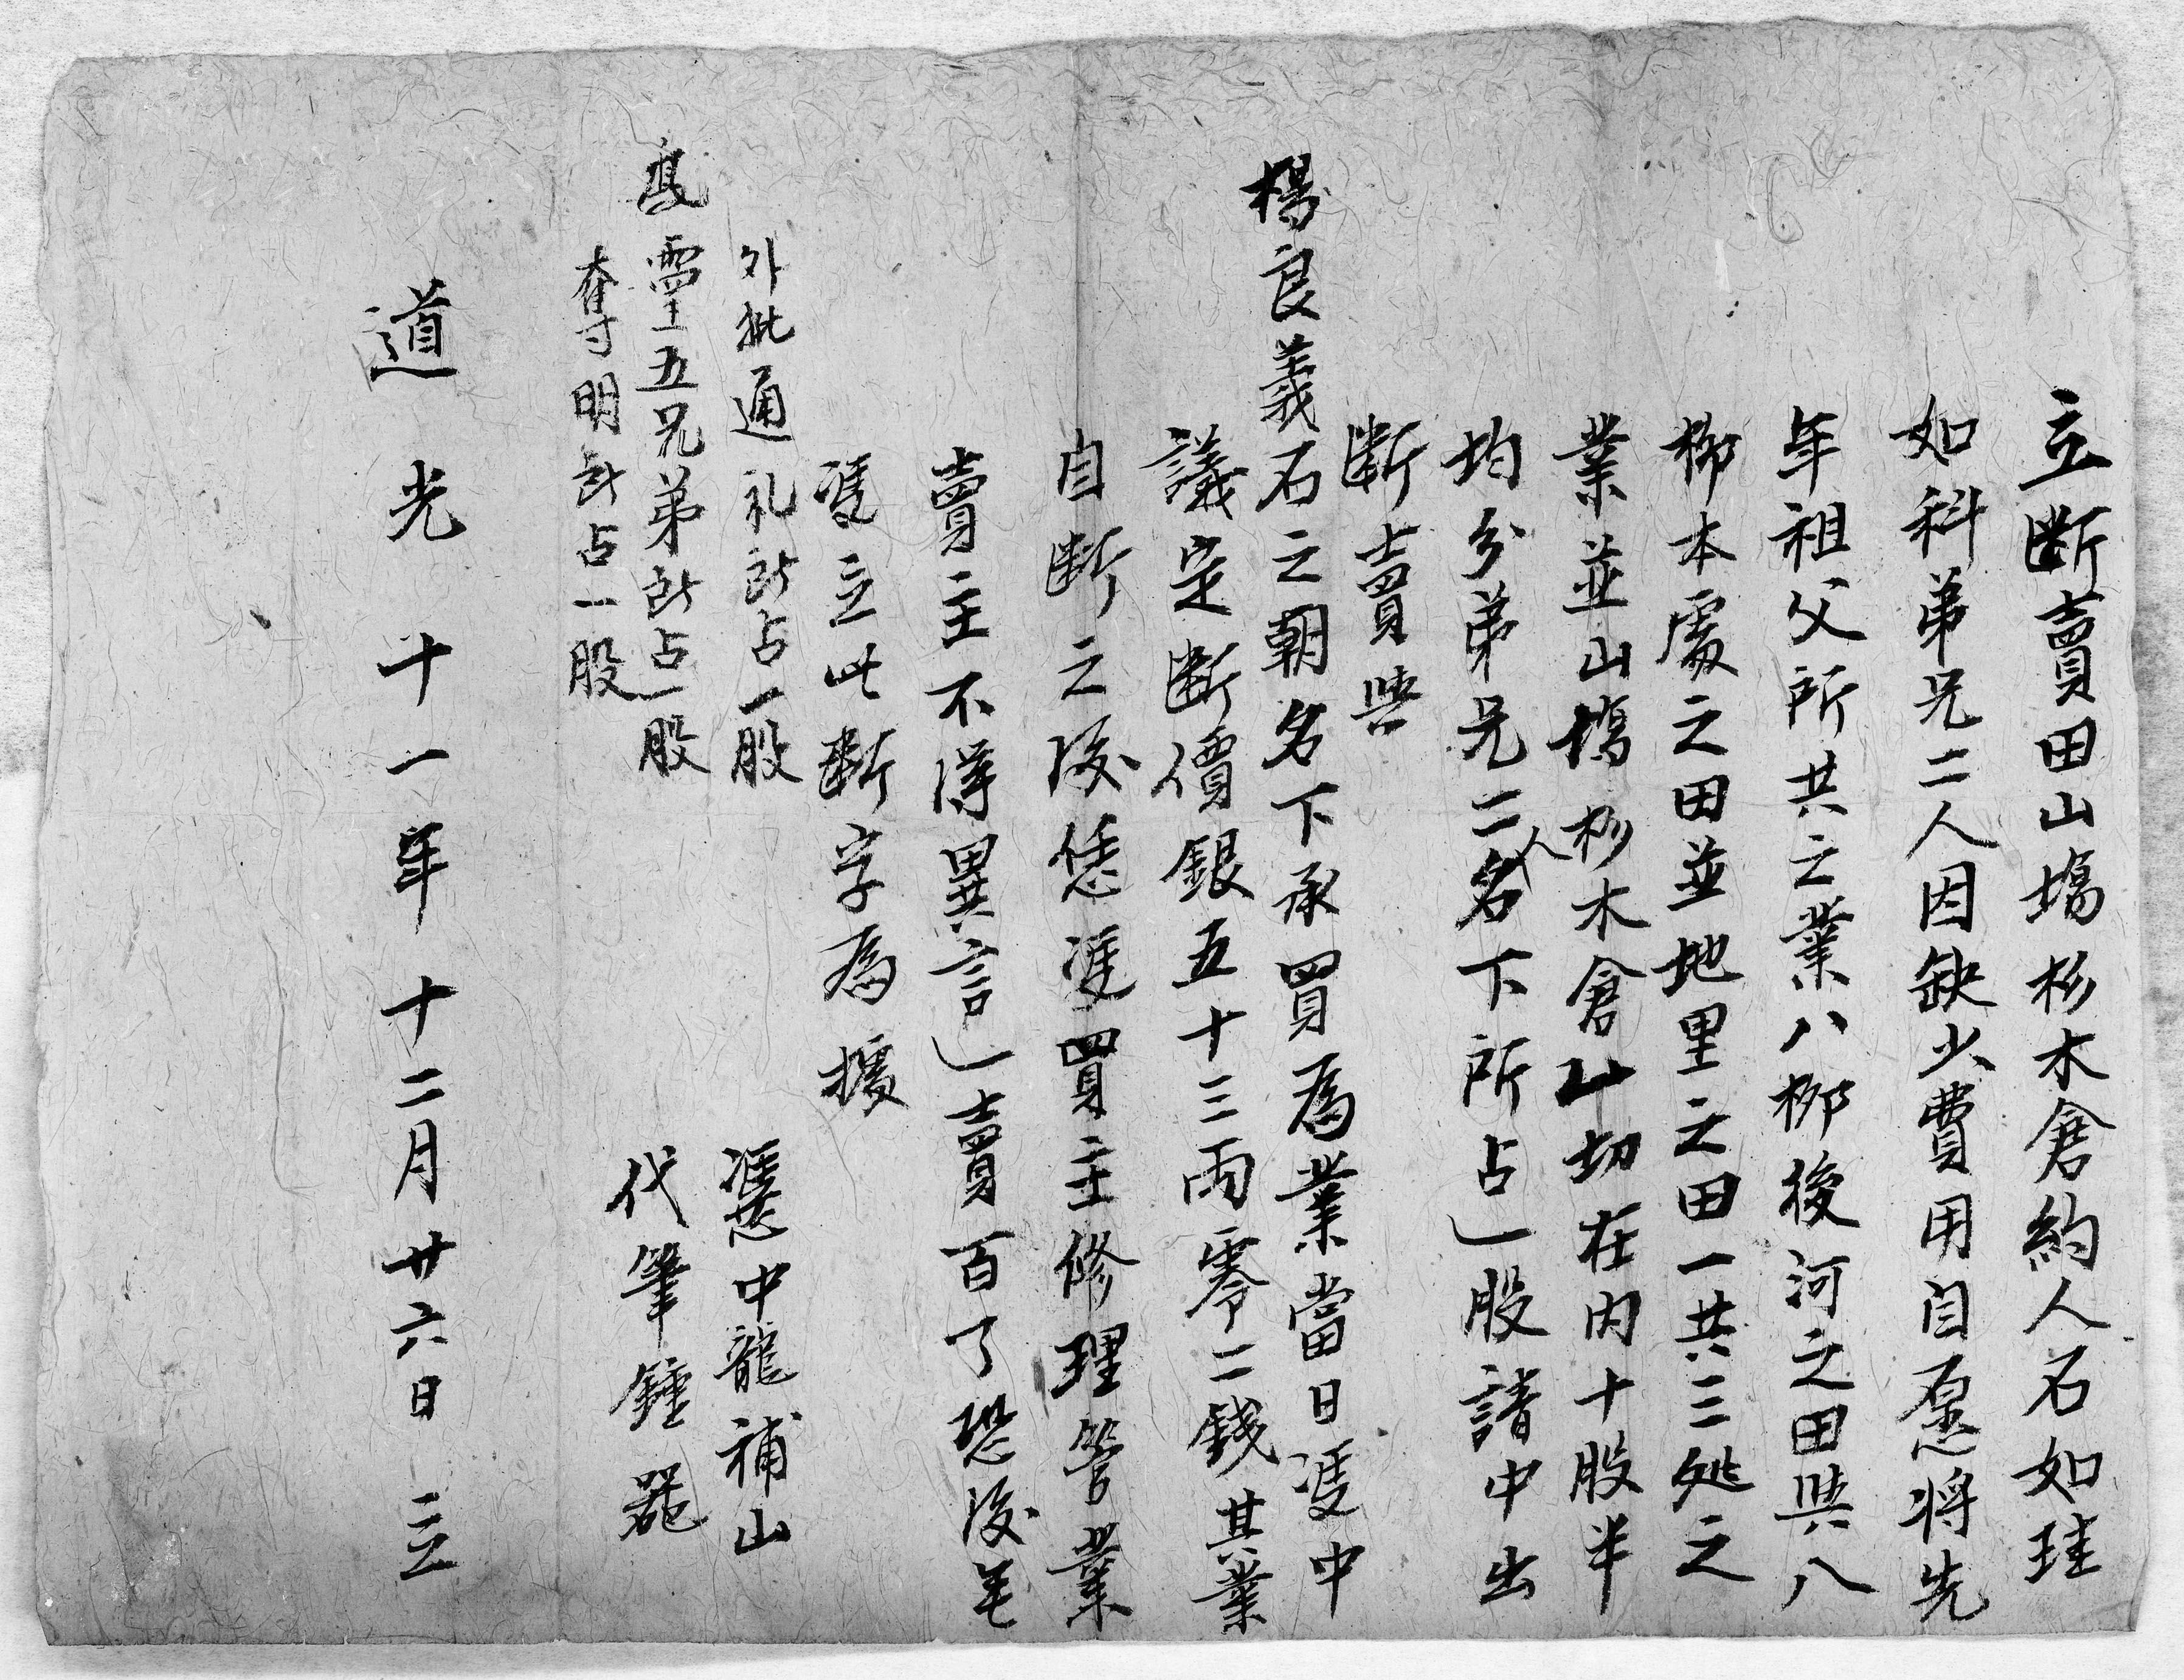 立断賣田山塲杉木倉約人石如珪
如科弟兄二人因缺少費用自愿将先
年祖父所共之業八柳後河之田與八
柳本處之田並地里之田一共三處之
業並山塲杉木倉一切在内十股半
均分弟兄二人名下所占一股請中出
断賣與
楊良義石之朝名下承買為業當日凴中
議定断價銀五十三両零二錢其業
自断之後恁凴買主修理管業
賣主不得異言一賣百了恐後無
凴立此断字為據
外批通礼所占一股
高雲五兄弟所占一股
奪明所占一股
凴中龍補山
代筆鍾器
道光十一年十二月廿六日立